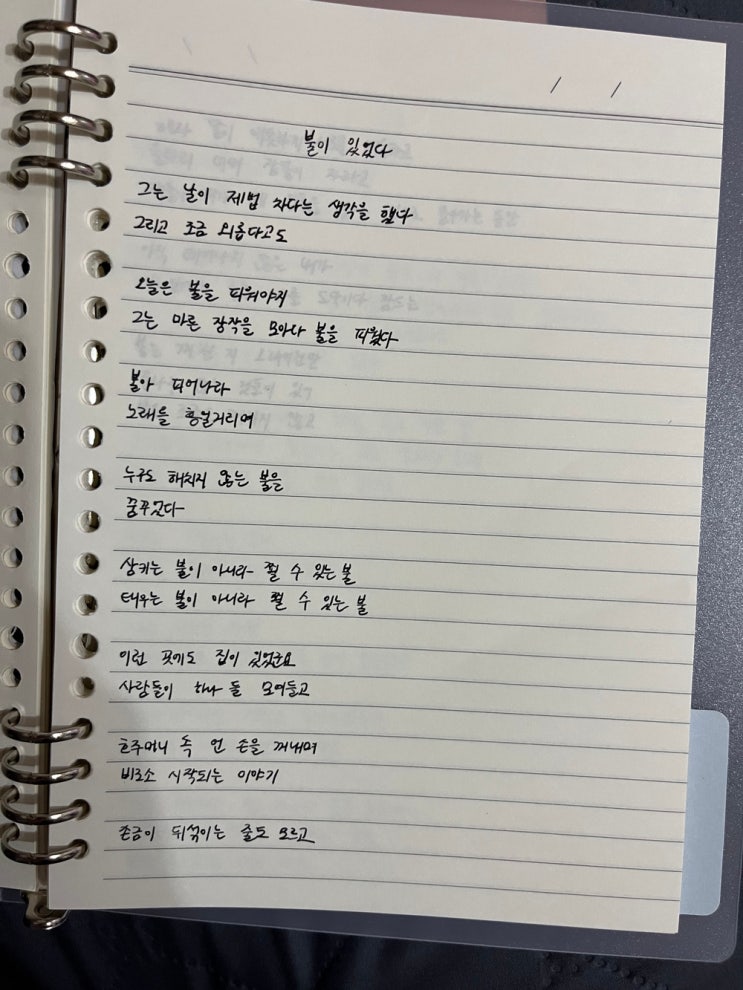 / /
불이 있었다
그는 날이 제법 차다는 생각을 했다
그리고 조금 외롭다고도
오늘은 불을 피워야지
그는 마른 장작을 모아다 불을 피웠다
불아 피어나라
노래를 흥얼거리며
누구도 해치지 않는 불을
꿈꾸었다
삼키는 불이 아니라 쬘 수 있는 불
태우는 불이 아니라 쬘 수 있는 불
이런 곳에도 집이 있었군요
사람들이 하나 둘 모여들고
호주머니 속 언 손을 꺼내며
비로소 시작되는 이야기
손금이 뒤섞이는 줄도 모르고